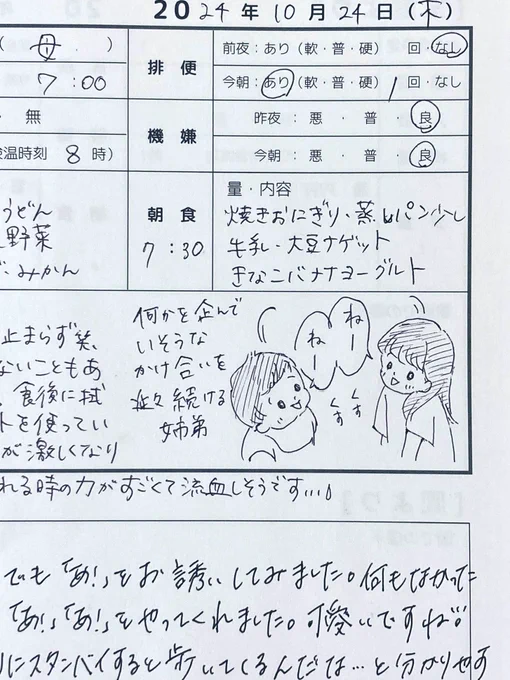 2024年10月24日(木)
(母)
7:00
排便
前夜：あり（軟・普・硬）　回・なし
今朝：あり（軟・普・硬）1回・なし
・無
機嫌
昨夜：悪・普・良
検温時刻 8時)
今朝：悪・普・良
うどん
野菜
みかん
朝食
7:30
量・内容
焼きおにぎり・蒸しパン少し
牛乳・大豆ナゲット
きなこバナナヨーグルト
止まらず笑、
ないこともあ
、食後に拭
トを使ってい
が激しくなり
何かを企んで
いそうな
かけ合いを
延々続ける
姉弟
ねー
ねー
くす
くす
れる時の力がすごくて流血しそうです…
でも「あ!」をお誘いしてみました。何もなかった
「あ!」「あ!」をやってくれました。可愛いですね
にスタンバイすると歩いてくるんだな…と分かりやす